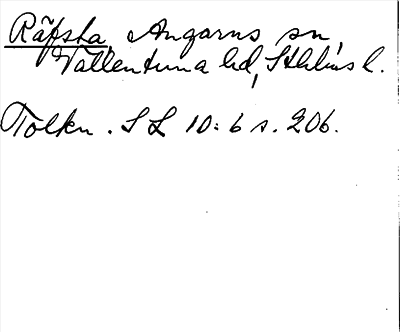 Räfsta, Angarns sn,
Vallentuna hd, Sthlms l.
Tolkn. SL 10:6 s. 206.